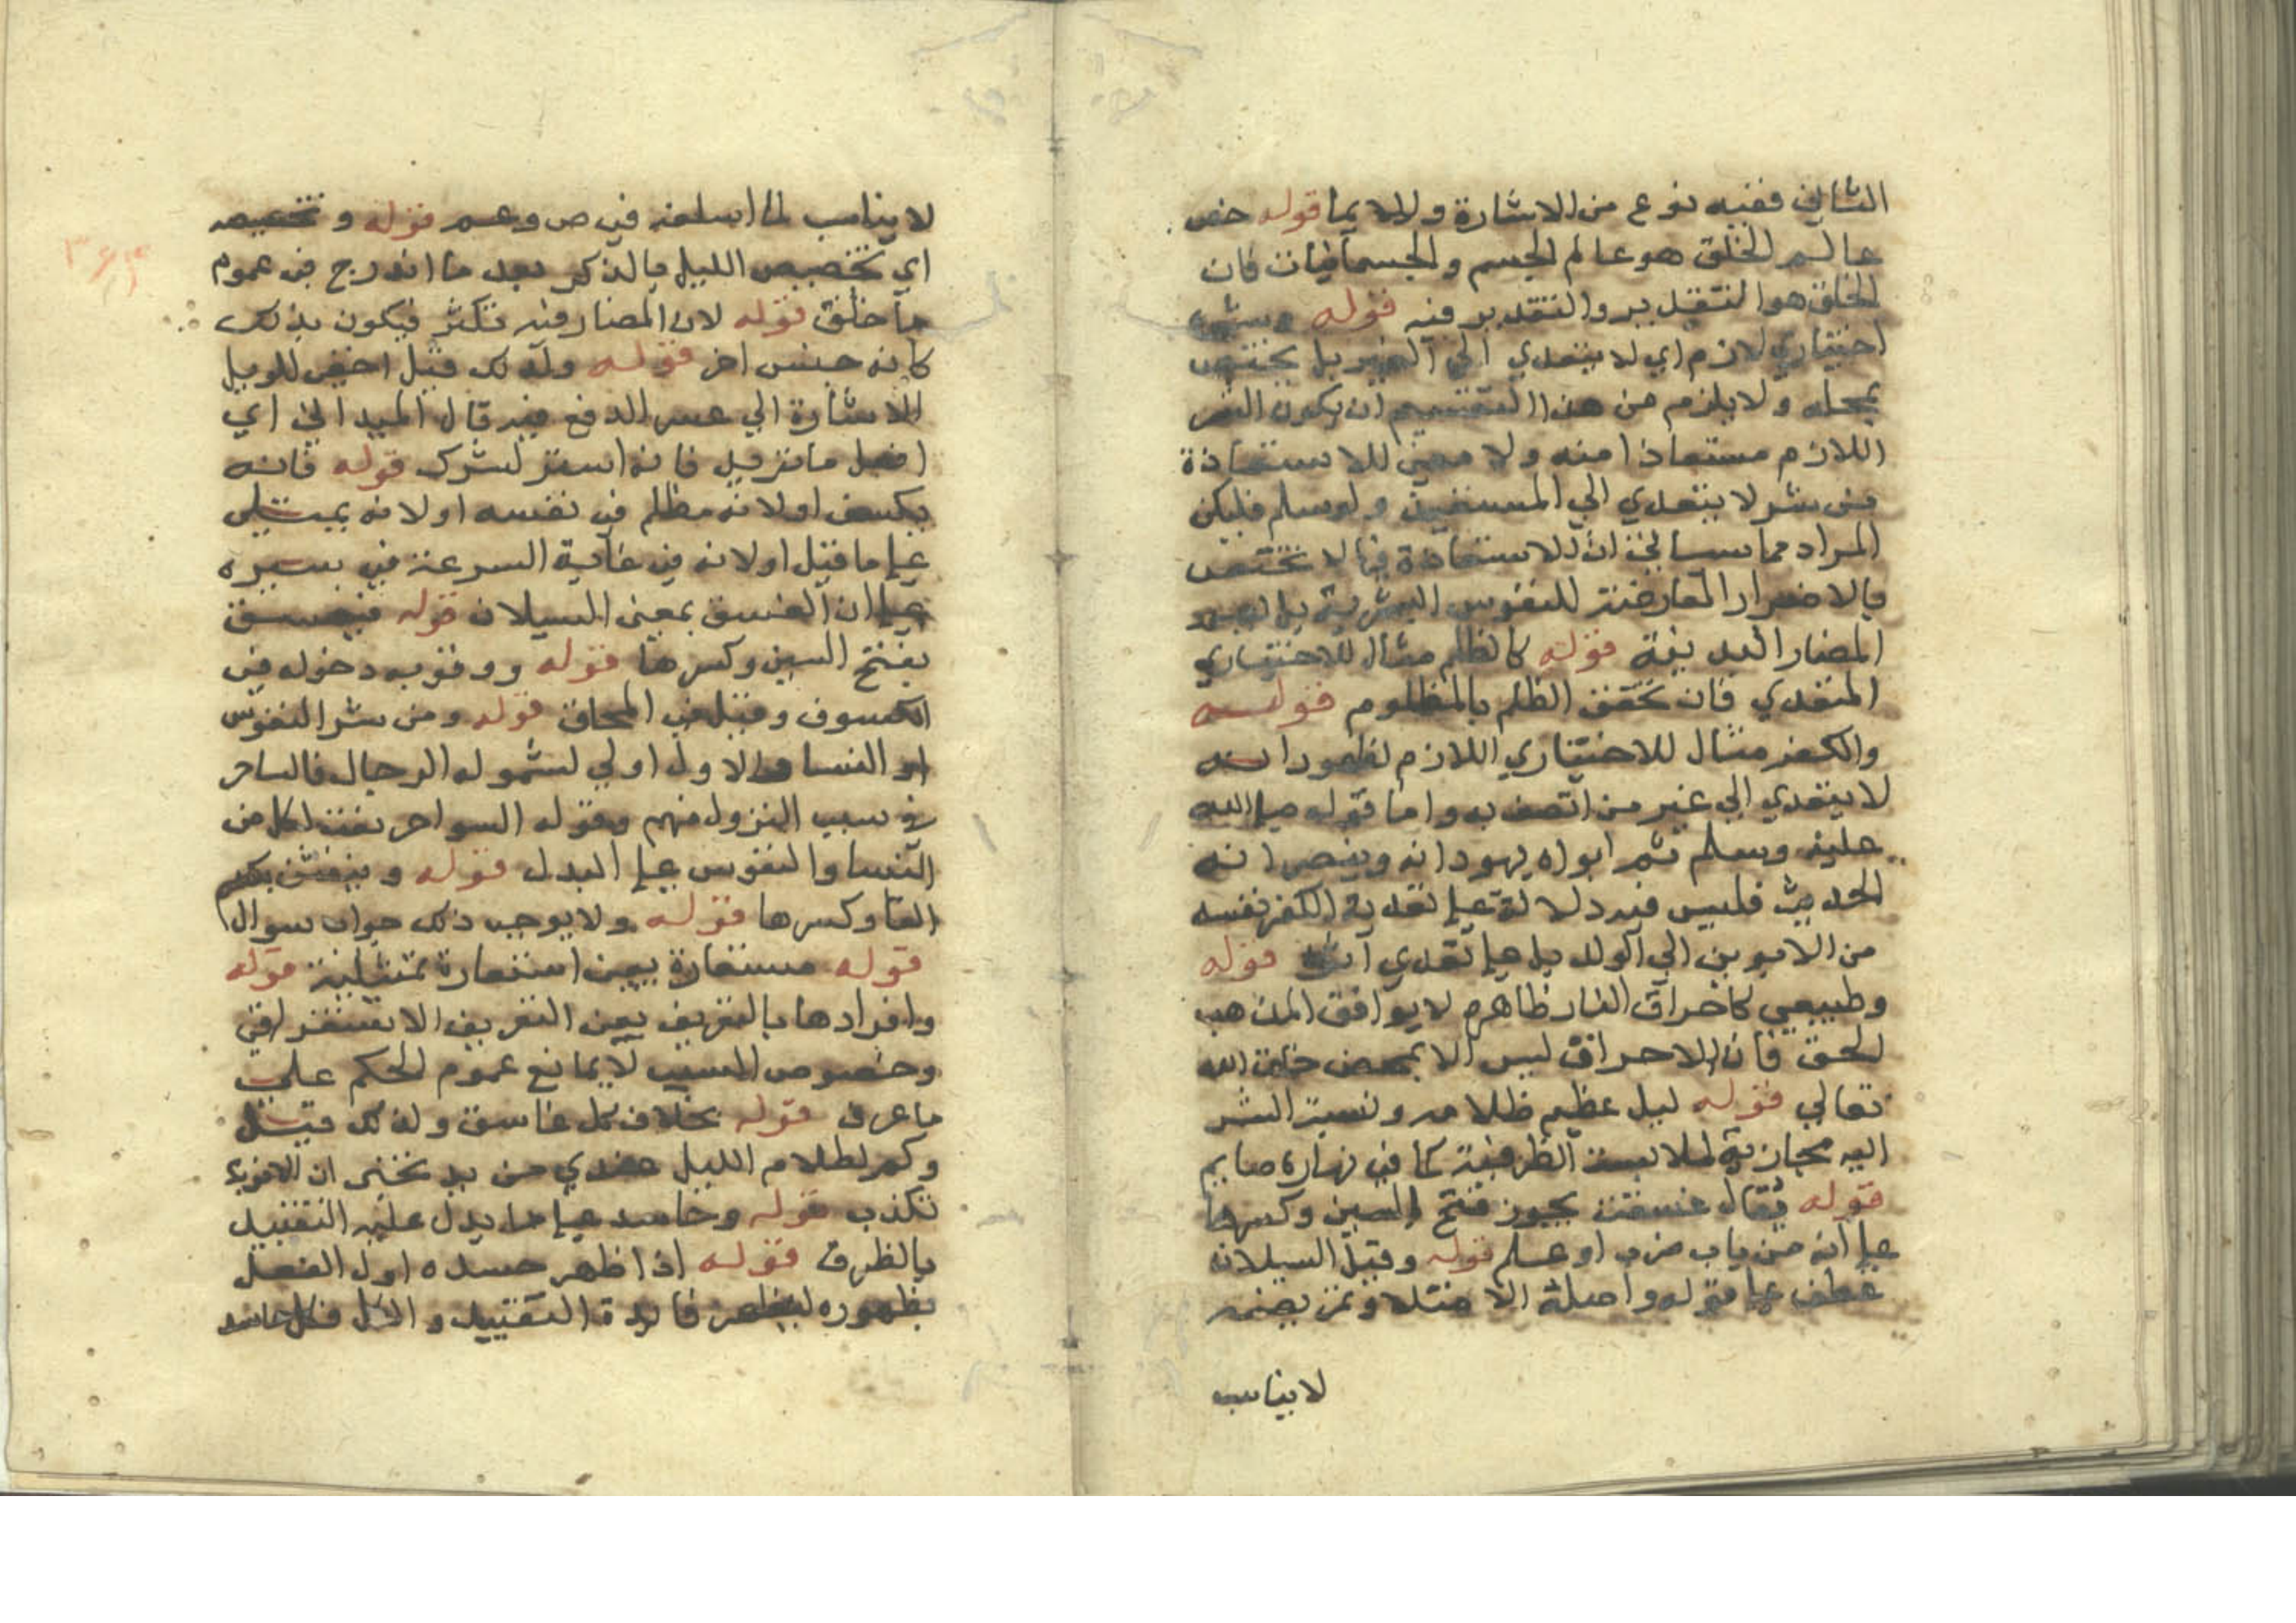 الثاني ففيه نوع من الاشارة والايما قوله خص
عالم الخلق هو عالم الجسم والجسمانيات فان
الخلق هو التقدير والتقدير فيه قوله وشره
اختياري لازم اي لا يتعدي الي الغير بل يختص
بمحله ولا يلزم من هذا التقسيم ان يكون الشر
اللازم مستعاذا منه ولا معني للاستعاذة
من شر لا يتعدي الي المستعيذ ولو سلم فليكن
المراد مما سيالي ان الاستعاذة فيها لا تختص
بالاضرار العارضة للنفوس البشرية بل
المضار البدنية قوله كالظلم مثال للاختياري
المتعدي فان تحقق الظلم بالمظلوم قوله
والكفر مثال للاختياري اللازم لظهور انه
لا يتعدي الي غير من اتصف به واما قوله صلي الله
عليه وسلم ثم ابواه يهودانه وينصرانه
الحديث فليس فيه دلالة علي تعدية الكفر نفسه
من الابوين الي الولد بل علي تعدي قوله
وطبيعي كاحراق النار ظاهره لا يوافق المذهب
الحق فان الاحراق ليس الا بمحض خلق الله
تعالي قوله ليل عظيم ظلامه ونسبة الشر
اليه مجازية لملابسة الظرفية كما في نهاره صايم
قوله يقال غسقت يجوز فتح السين وكسرها
علي انه من باب ضرب او علم قوله وقيل السيلان
عطف علي قوله واصله الامتلا وتمريضه
لا يناسب
لا يناسب لما اسلفه في ص وعم قوله وتخصيصه
اي تخصيص الليل بالذكر بعد ما اندرج في عموم
ما خلق قوله لان المضار فيه تكثر فيكون بذلك
كانه جنس اخر قوله ولذلك قيل اخفي للويل
الاشارة الي عسر الدفع فيه قال الميداني اي
افعل ما تريد فانه استر لسرك قوله فانه
يكسف او لانه مظلم في نفسه او لانه يمتلي
علي ما قيل او لانه في غاية السرعة في سيره
علي ان الغسق بمعني السيلان قوله فيغسق
بفتح السين وكسرها قوله ووقوبه دخوله في
الكسوف وقيل في المحاق قوله ومن شر النفوس
او النسا والاول اولي لشموله الرجال فالساحر
في سبب النزول منهم وقوله السواحر نعت لكل من
النسا والنفوس علي البدل قوله وينفثن بضم
الفا وكسرها قوله ولا يوجب ذلك جواب سوال
قوله مستعارة يعني استعارة تمثيلية قوله
وافرادها بالتعريف يعني التعريف الاستغراقي
وخصوص السبب لا يمانع عموم الحكم علي
ما عرف قوله بخلاف كل غاسق ولذلك قيل
وكم لظلام الليل عندي من يد تخبر ان المانوية
تكذب قوله وحاسد علي ما يدل عليه التقييد
بالظرف قوله اذا ظهر حسده اول الفعل
بظهوره ليظهر فايدة التقييد والا فكل حاسد